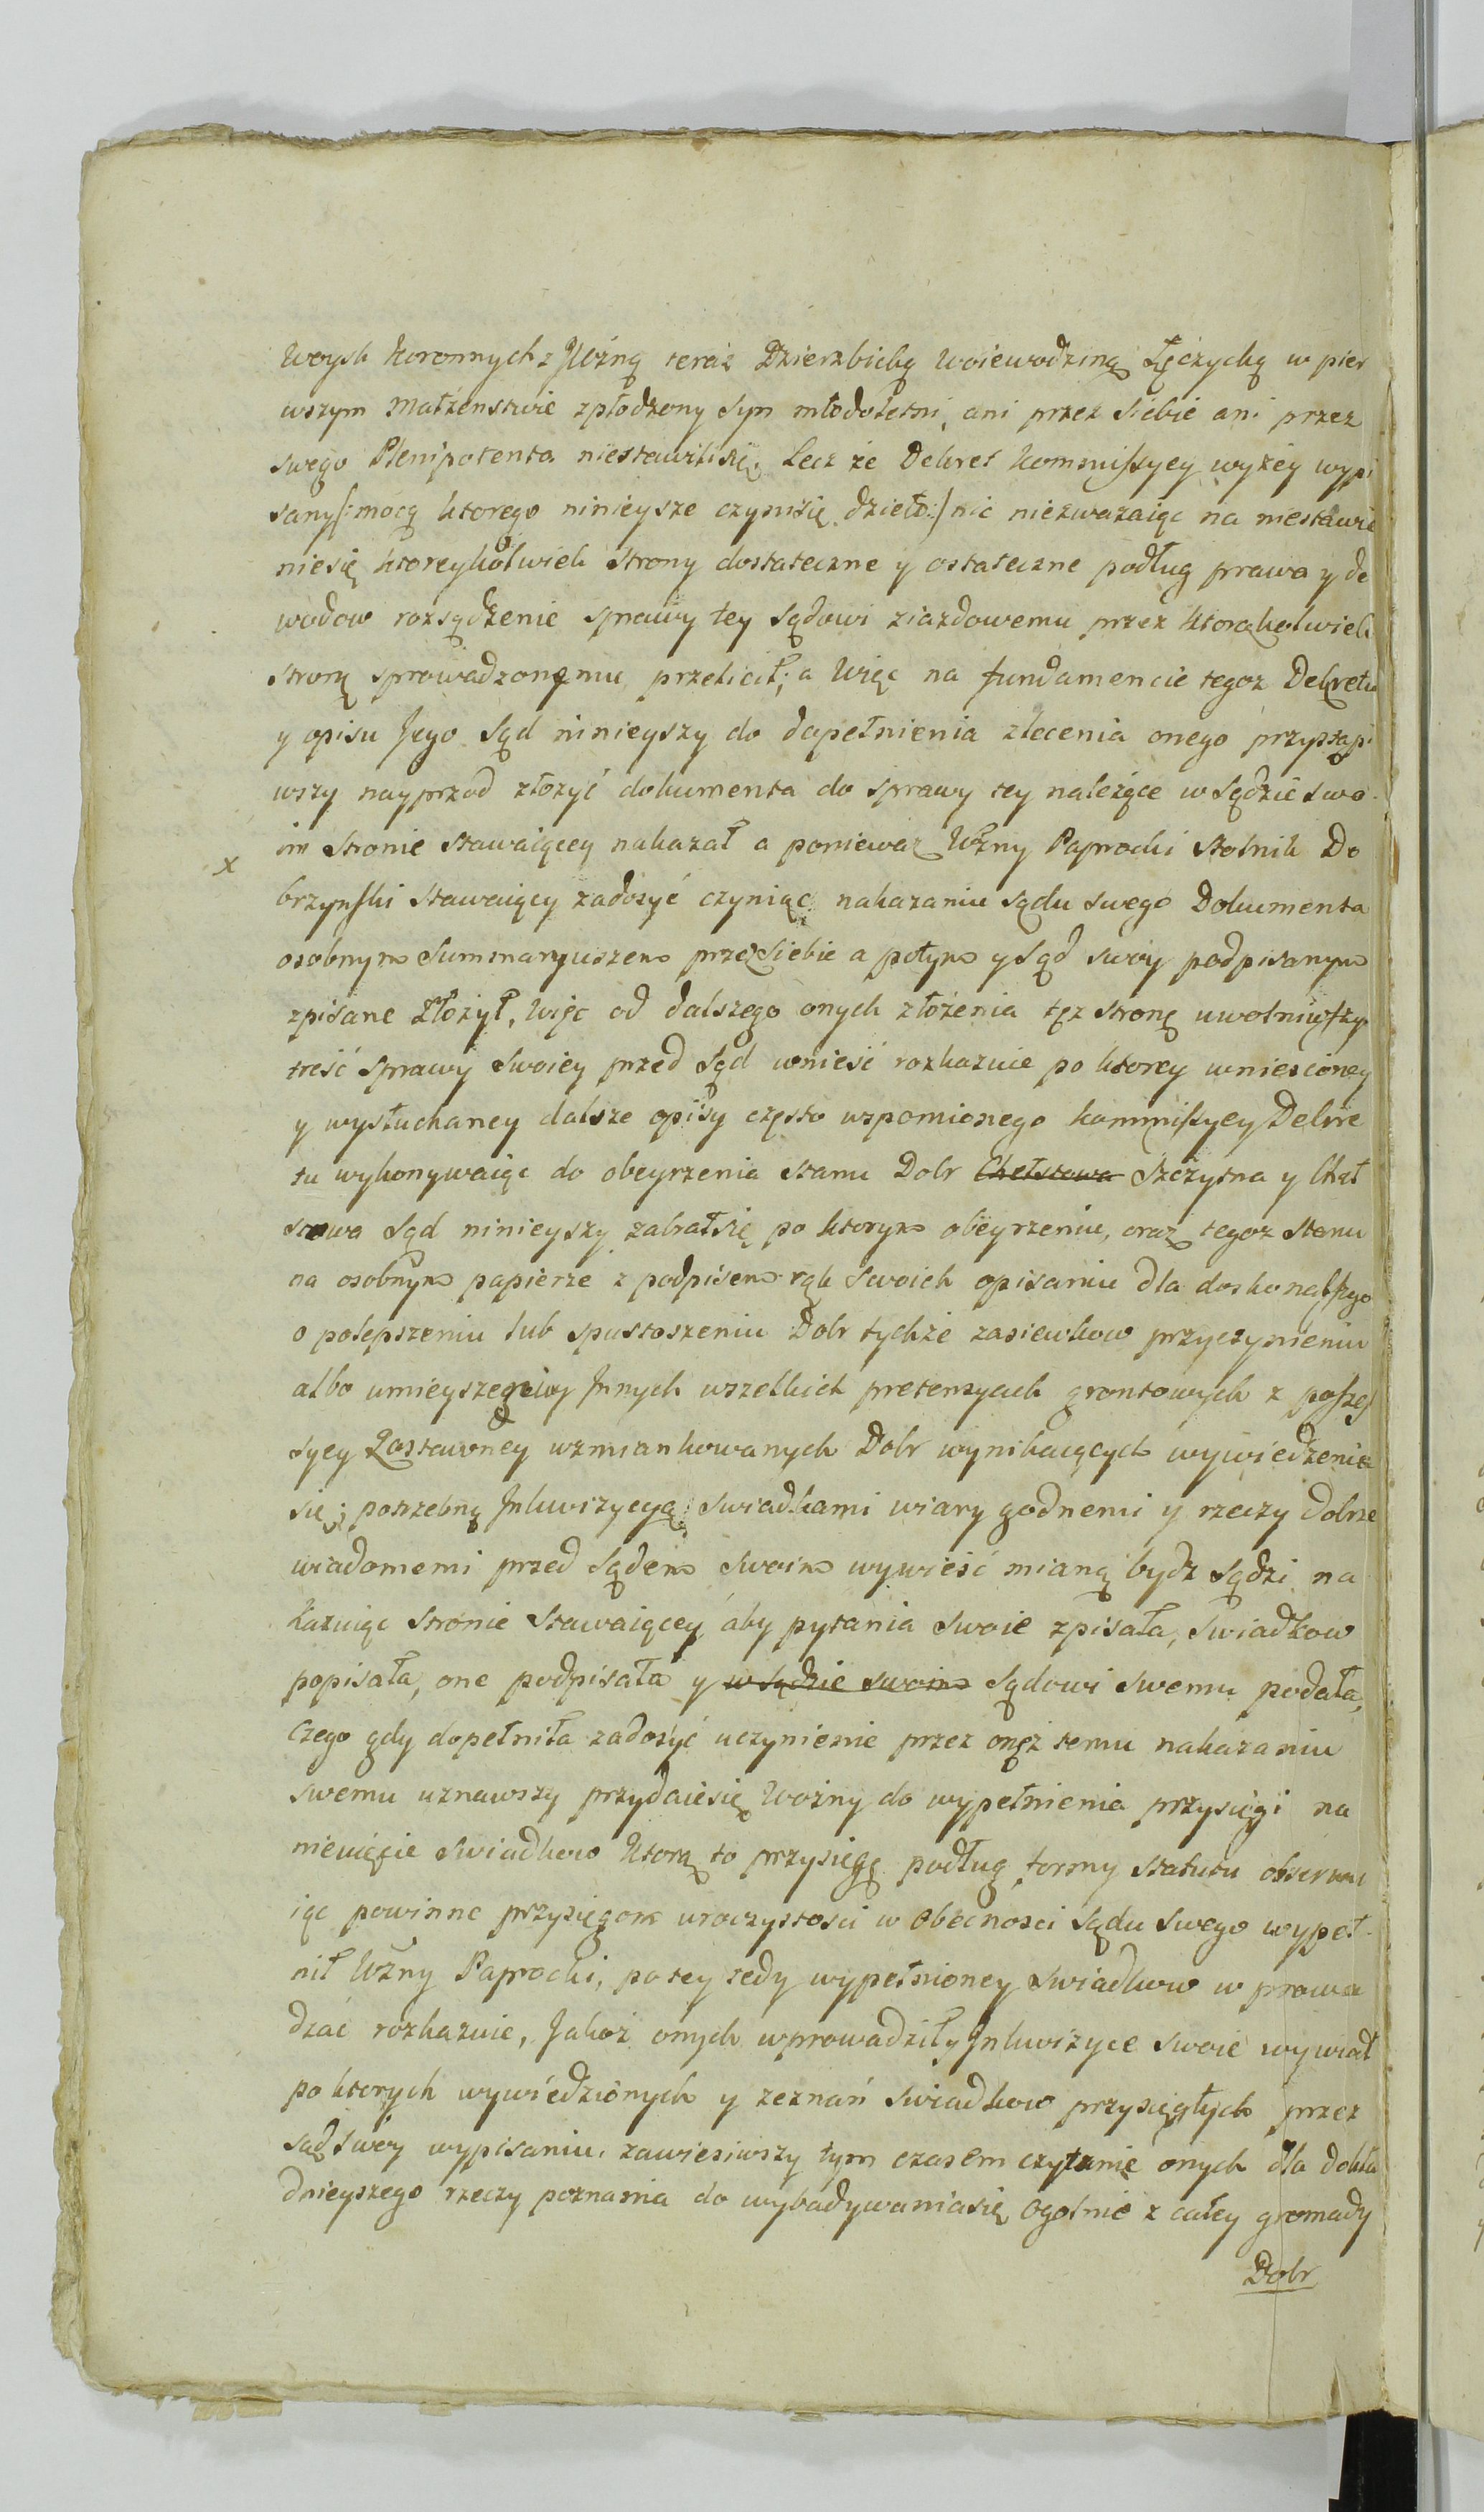 Woysk Koronnych z Wźną teraz Dzierzbicką Woiewodziną Łęczycką w pier
wszym Małżenstwie zpłodzony syn młodoletni, ani przez siebie ani przez
swego Plenipotenta niestawilisię, Lecz że Dekret Kommissyey wyżey wypi
sany /: mocą ktorego ninieysze czynisię dzieło :/ nic niezważaiąc na niestawie
niesię ktoreykolwiek strony dostateczne y ostateczne podług prawa y do
wodow rozsądzenie sprawy tey sądowi ziazdowemu przez ktorąkolwiek
stronę sprowadzonemu przelicił; a więc na fundamencie tegoz Dekretu
y opisu Jego Sąd ninieyszy do dopełnienia zlecenia onego przystąpi
wszy nayprzod złożyć dokumenta do sprawy tey należące w sądzie swo
x im stronie stawaiącey nakazał a poniewaz Wżny Paprocki Stolnik Do
brzynski stawaiący zadosyć czyniąc nakazaniu sądu swego Dokumenta
osobnym Summaryuszem przez siebie a potym y Sąd swoy podpisanym
zpisane złożył, więc od dalszego onych złożenia tęz stronę uwolniwszy
treść sprawy swoiey przed Sąd wnieść rozkazuie po ktorey wniesioney
y wysłuchaney dalsze opisy często wspomionego kommissyey Dekre
tu wykonywaiąc do obeyrzenia stanu Dobr Chełstowa Szczytna y Cheł
stowa Sąd ninieyszy zabrałsię po ktorym obeyrzeniu, oraz tegoz stanu
na osobnym papierze z podpisem rąk swoich opisaniu dla doskonalszego
o polepszeniu lub spustoszeniu Dobr tychże zasiewkow przyczynieniu
albo umieyszeniu y Innych wszelkich pretensyach grontowych z posses
syey Zastawney wzmiankowanych Dobr wynikaiących wywiedzenia
się; potrzebną Inkwizycyą swiadkami wiary godnemi y rzeczy dobrze
wiadomemi przed sądem swoim wywieść mianą bydz sądzi na
kazuiąc stronie stawaiącey aby pytania swoie zpisała, swiadkow
popisała, one podpisała y w sądzie swoim sądowi swemu podała,
czego gdy dopełniła zadosyć uczynienie przez onęż temu nakazaniu
swemu uznawszy przydaiesię Wożny do wypełnienia przysięgi na
nieuięcie swiadkow ktorą to przysięgę podług formy statutu obserwu
iąc powinne przysięgom uroczystosci w obecnosci sądu swego wypeł
nił Wżny Paprocki, po tey tedy wypełnioney swiadkow w prowa
dzać rozkazuie, Jakoż onych wprowadził y Inkwizyce swoie wywiodł
po ktorych wywiedzionych y zeznań swiadkow przysięgłych przez
sąd swoy wypisaniu, zawiesiwszy tym czasem czytanie onych dla dokła
dnieyszego rzeczy poznania do wybadywaniasię ogolnie z całey gromady
Dobr